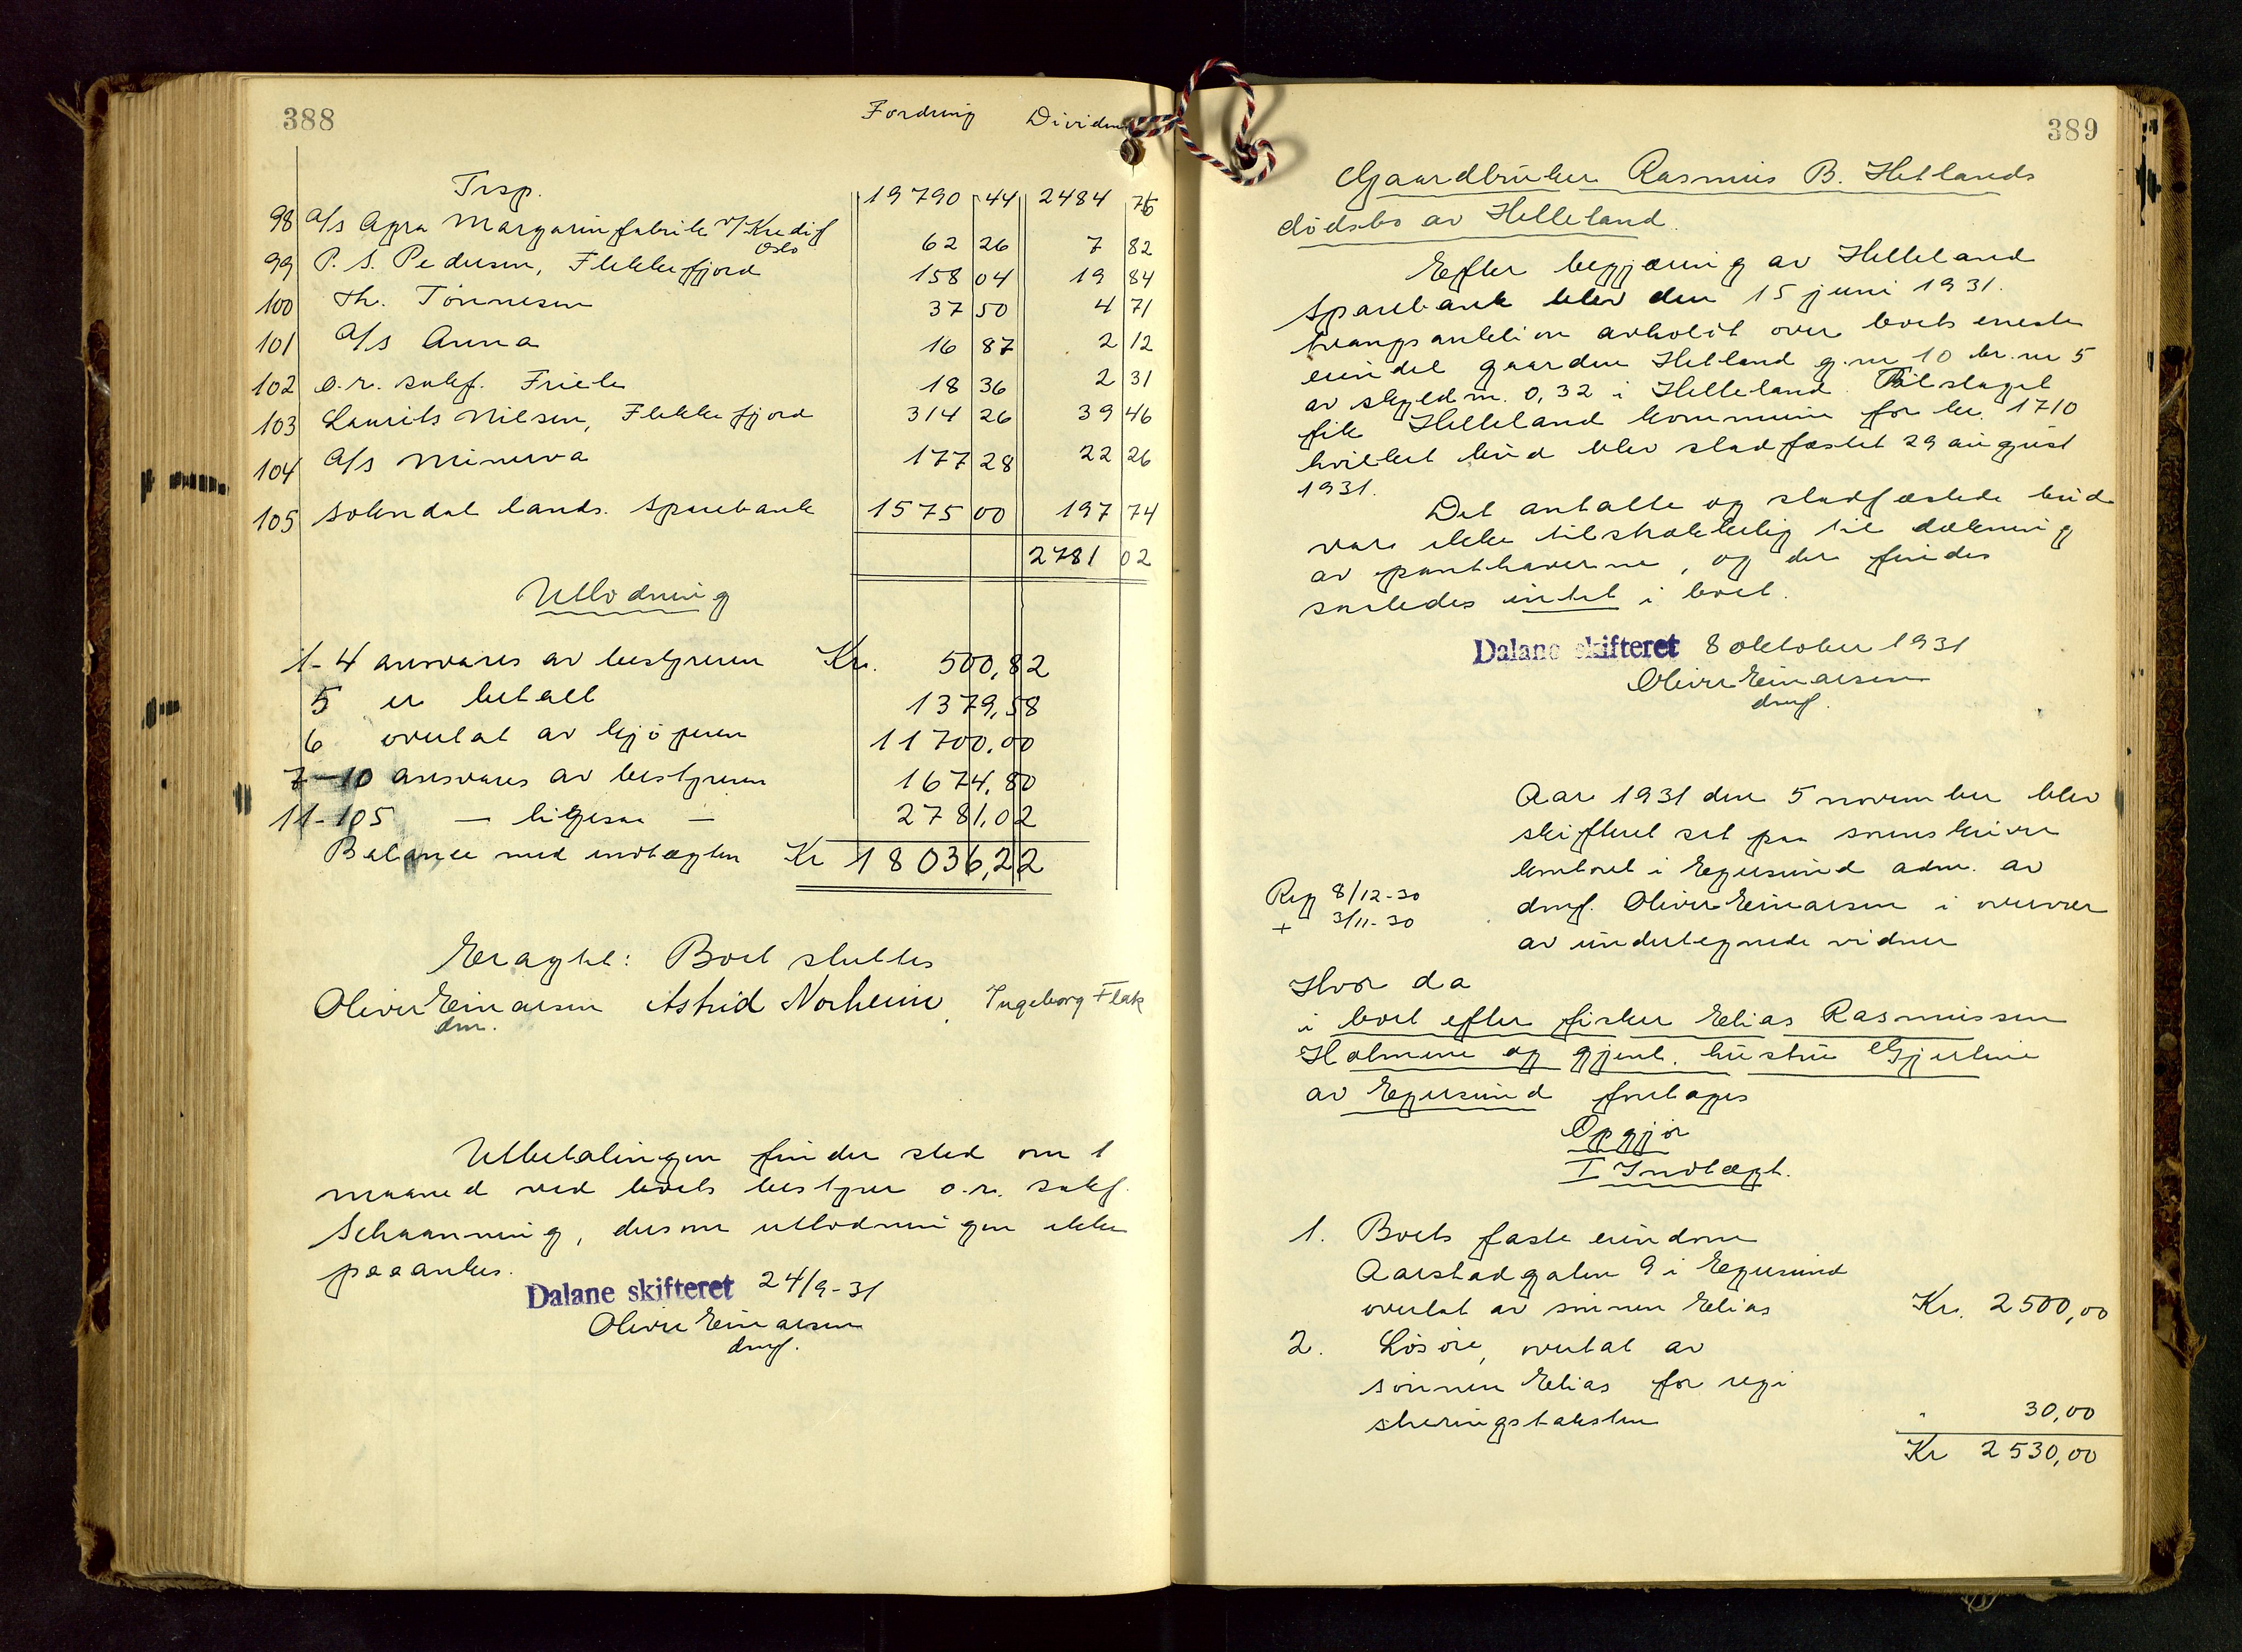 388
Fordring Dividen
Trsp. 19790 44 2484 76
98 A/s Agra Margarinfabrik v/Kredif Oslo 62 26 7 82
99 P. S. Pedersen, Flekkefjord 158 04 19 84
100 Th. Tönnesen 37 50 4 71
101 A/s Anna 16 87 2 12
102 o.r. sakf. Friele 18 36 2 31
103 Laurits Nilsen, Flekkefjord 314 26 39 46
104 A/s Minerva 177 28 22 26
105 Sokndal lands. Sparebank 1575 00 197 74
2781 02
Utlodning
1-4 ansvares av bestyreren Kr. 500,82
5 er betalt 1379,58
6 overtat av kjöperen 11700,00
7-10 ansvares av bestyreren 1674,80
11-105 — ligesaa — 2781,02
Balance med indtægten Kr 18036,22
Eragtet: Boet sluttes
Oliver Einarsen Astrid Norheim. Ingeborg Flak
dm.
Utbetalingen finder sted om 1
maaned ved boets bestyrer o.r. sakf.
Schaanning, dersom utlodningen ikke
paaankes.
Dalane skifteret 24/9-31
Oliver Einarsen
dmf.
389
Gaardbruker Rasmus B. Hetlands
dödsbo av Helleland.
Efter begjæring av Helleland
Sparebank blev den 15 juni 1931.
tvangsauktion avholdt over boets eneste
eiendel gaarden Hetland g.nr 10 br.nr 5
av skyld m. 0,32 i Helleland. Tilslaget
fik Helleland kommune for kr. 1710
hvilket bud blev stadfæstet 29 august
1931.
Det antatte og stadfæstede bud
var ikke tilstrækkelig til dækning
av panthaverne, og der findes
saaledes intet i boet.
Dalane skifteret 8 oktober 1931
Oliver Einarsen
dmf.
Aar 1931 den 5 november blev
skifteret sat paa sorenskriver
kontoret i Egersund adm. av
dmf. Oliver Einarsen i overvær
av undertegnede vidner
Reg 8/12-30
+ 3/11-30
Hvor da
i boet efter fisker Elias Rasmussen
Holmene og gjenl. hustru Gjertine
av Egersund foretages
Opgjör
I Indtægt.
1. Boets faste eiendom
Aarstadgaten 9 i Egersund
overtat av sönnen Elias Kr. 2500,00
2. Lösöre, overtat av
sönnen Elias for regi
streringstaksten " 30,00
Kr 2530,00